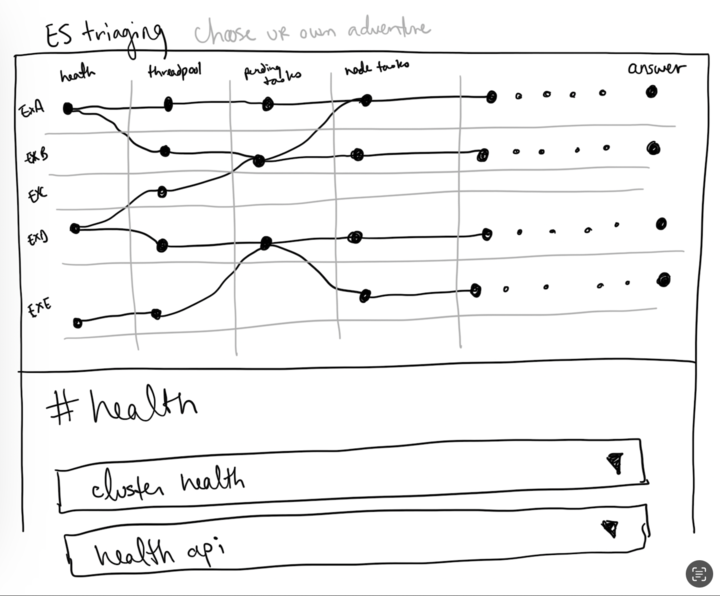 ES triaging choose ur own adventure
heath threadpool pending tasks node tasks answer
ExA
EXB
EXC
EXD
EXE
# health
cluster health
health api